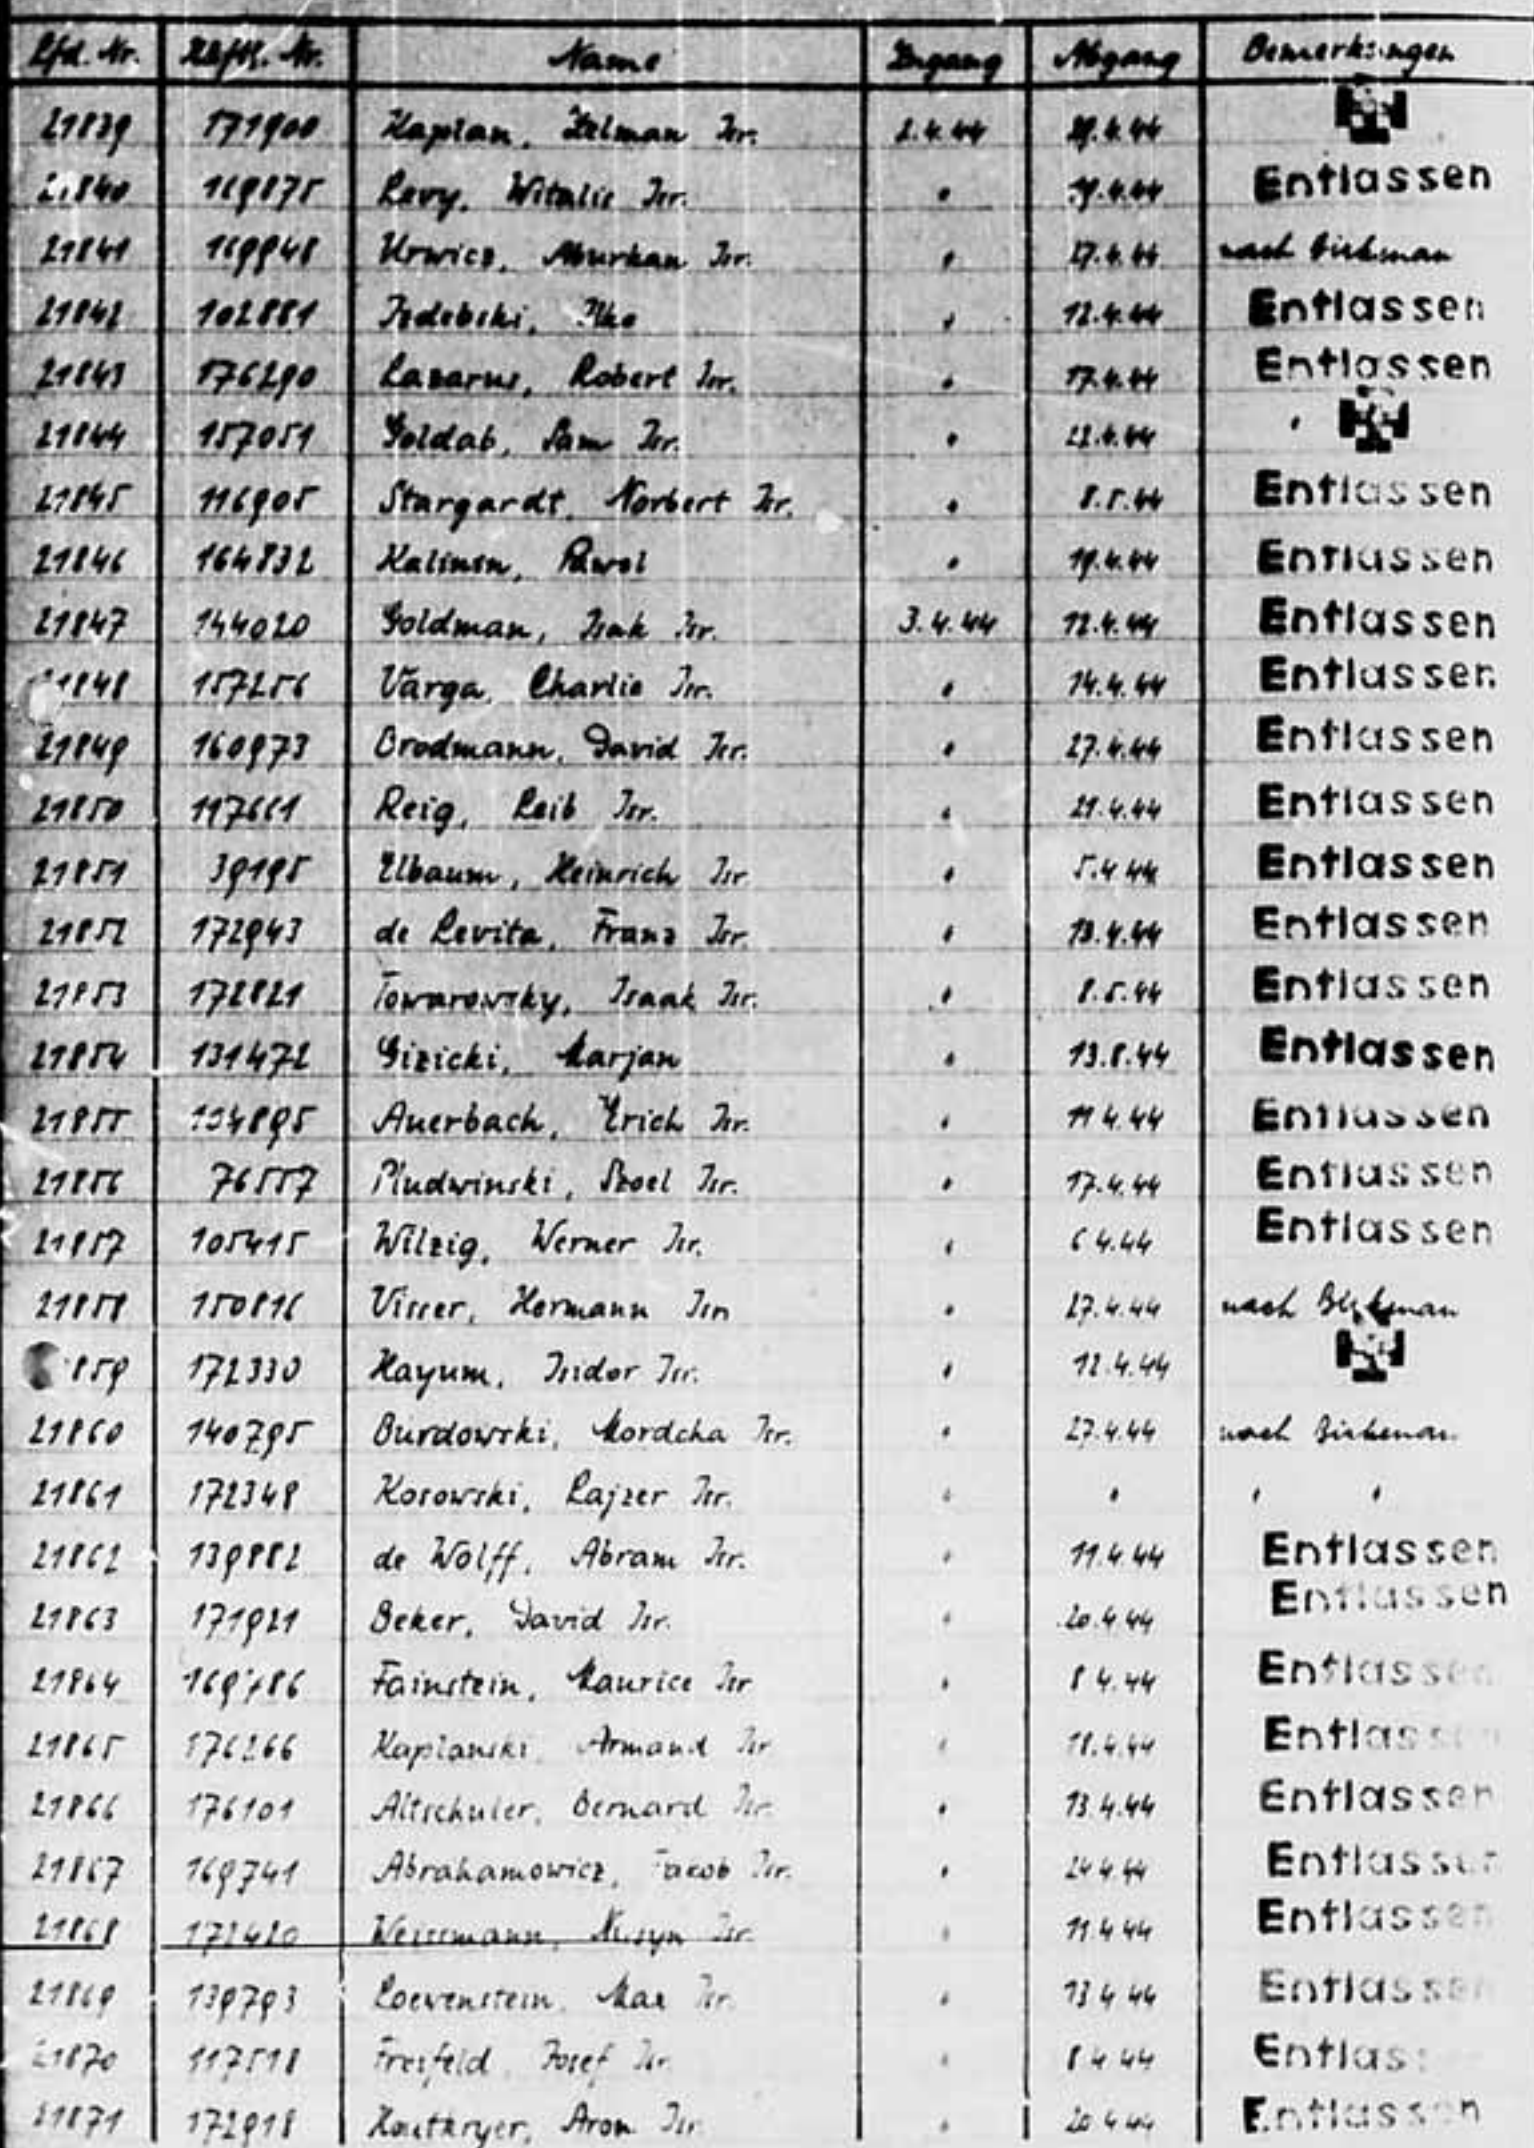 Lfd. Nr. Häftl. Nr. Name Zugang Abgang Bemerkungen
21839 171900 Kaplan, Zelman Isr. 2.4.44 4.44
21840 169875 Levy, Witalis Isr. " 19.4.44 Entlassen
21841 169948 Urwicz, Isr. " 27.4.44 nach Birkenau
21842 102881 Izdebski, " 12.4.44 Entlassen
21843 176290 Lazarus, Robert Isr. " 17.4.44 Entlassen
21844 157051 Goldab, Sam Isr. " 4.44 "
21845 116905 Stargardt, Norbert Isr. " 8.5.44 Entlassen
21846 164832 Kalinin, Pawel " 19.4.44 Entlassen
21847 144020 Goldman, Isak Isr. 3.4.44 12.4.44 Entlassen
21848 157256 Varga, Charlie Isr. " 14.4.44 Entlassen
21849 160973 Brodmann, David Isr. " 27.4.44 Entlassen
21850 117661 Reig, Leib Isr. " 21.4.44 Entlassen
21851 39195 Elbaum, Heinrich Isr. " 5.4.44 Entlassen
21852 172943 de Levita, Franz Isr. " 13.4.44 Entlassen
21853 172821 Towarowsky, Isaak Isr. " 8.5.44 Entlassen
21854 131472 Gizicki, Marjan " 13.8.44 Entlassen
21855 Auerbach, Erich Isr. " 11.4.44 Entlassen
21856 76557 Pludwinski, Isr. " 17.4.44 Entlassen
21857 105415 Wilzig, Werner Isr. " 6.4.44 Entlassen
21858 150816 Visser, Hermann Isr. " 27.4.44 nach Birkenau
859 172330 Hayum, Isidor Isr. " 12.4.44
21860 140795 Burdowski, Mordcha Isr. " 27.4.44 nach Birkenau
21861 172348 Kosowski, Lajzer Isr. " " " "
21862 139882 de Wolff, Abram Isr. " 11.4.44 Entlassen
21863 171921 Beker, David Isr. " 20.4.44 Entlassen
21864 169786 Fainstein, Maurice Isr. " 8.4.44 Entlassen
21865 176266 Kaplanski, Armand Isr. " 18.4.44 Entlassen
21866 176101 Altschuler, Bernard Isr. " 13.4.44 Entlassen
21867 169741 Abrahamowicz, Jakob Isr. " 24.4.44 Entlassen
21868 172420 Weissmann, Isr. " 11.4.44 Entlassen
21869 139793 Loewenstein, Max Isr. " 13.4.44 Entlassen
21870 117518 Josef Isr. " 8.4.44 Entlassen
21871 172918 Aron Isr. " 20.4.44 Entlassen